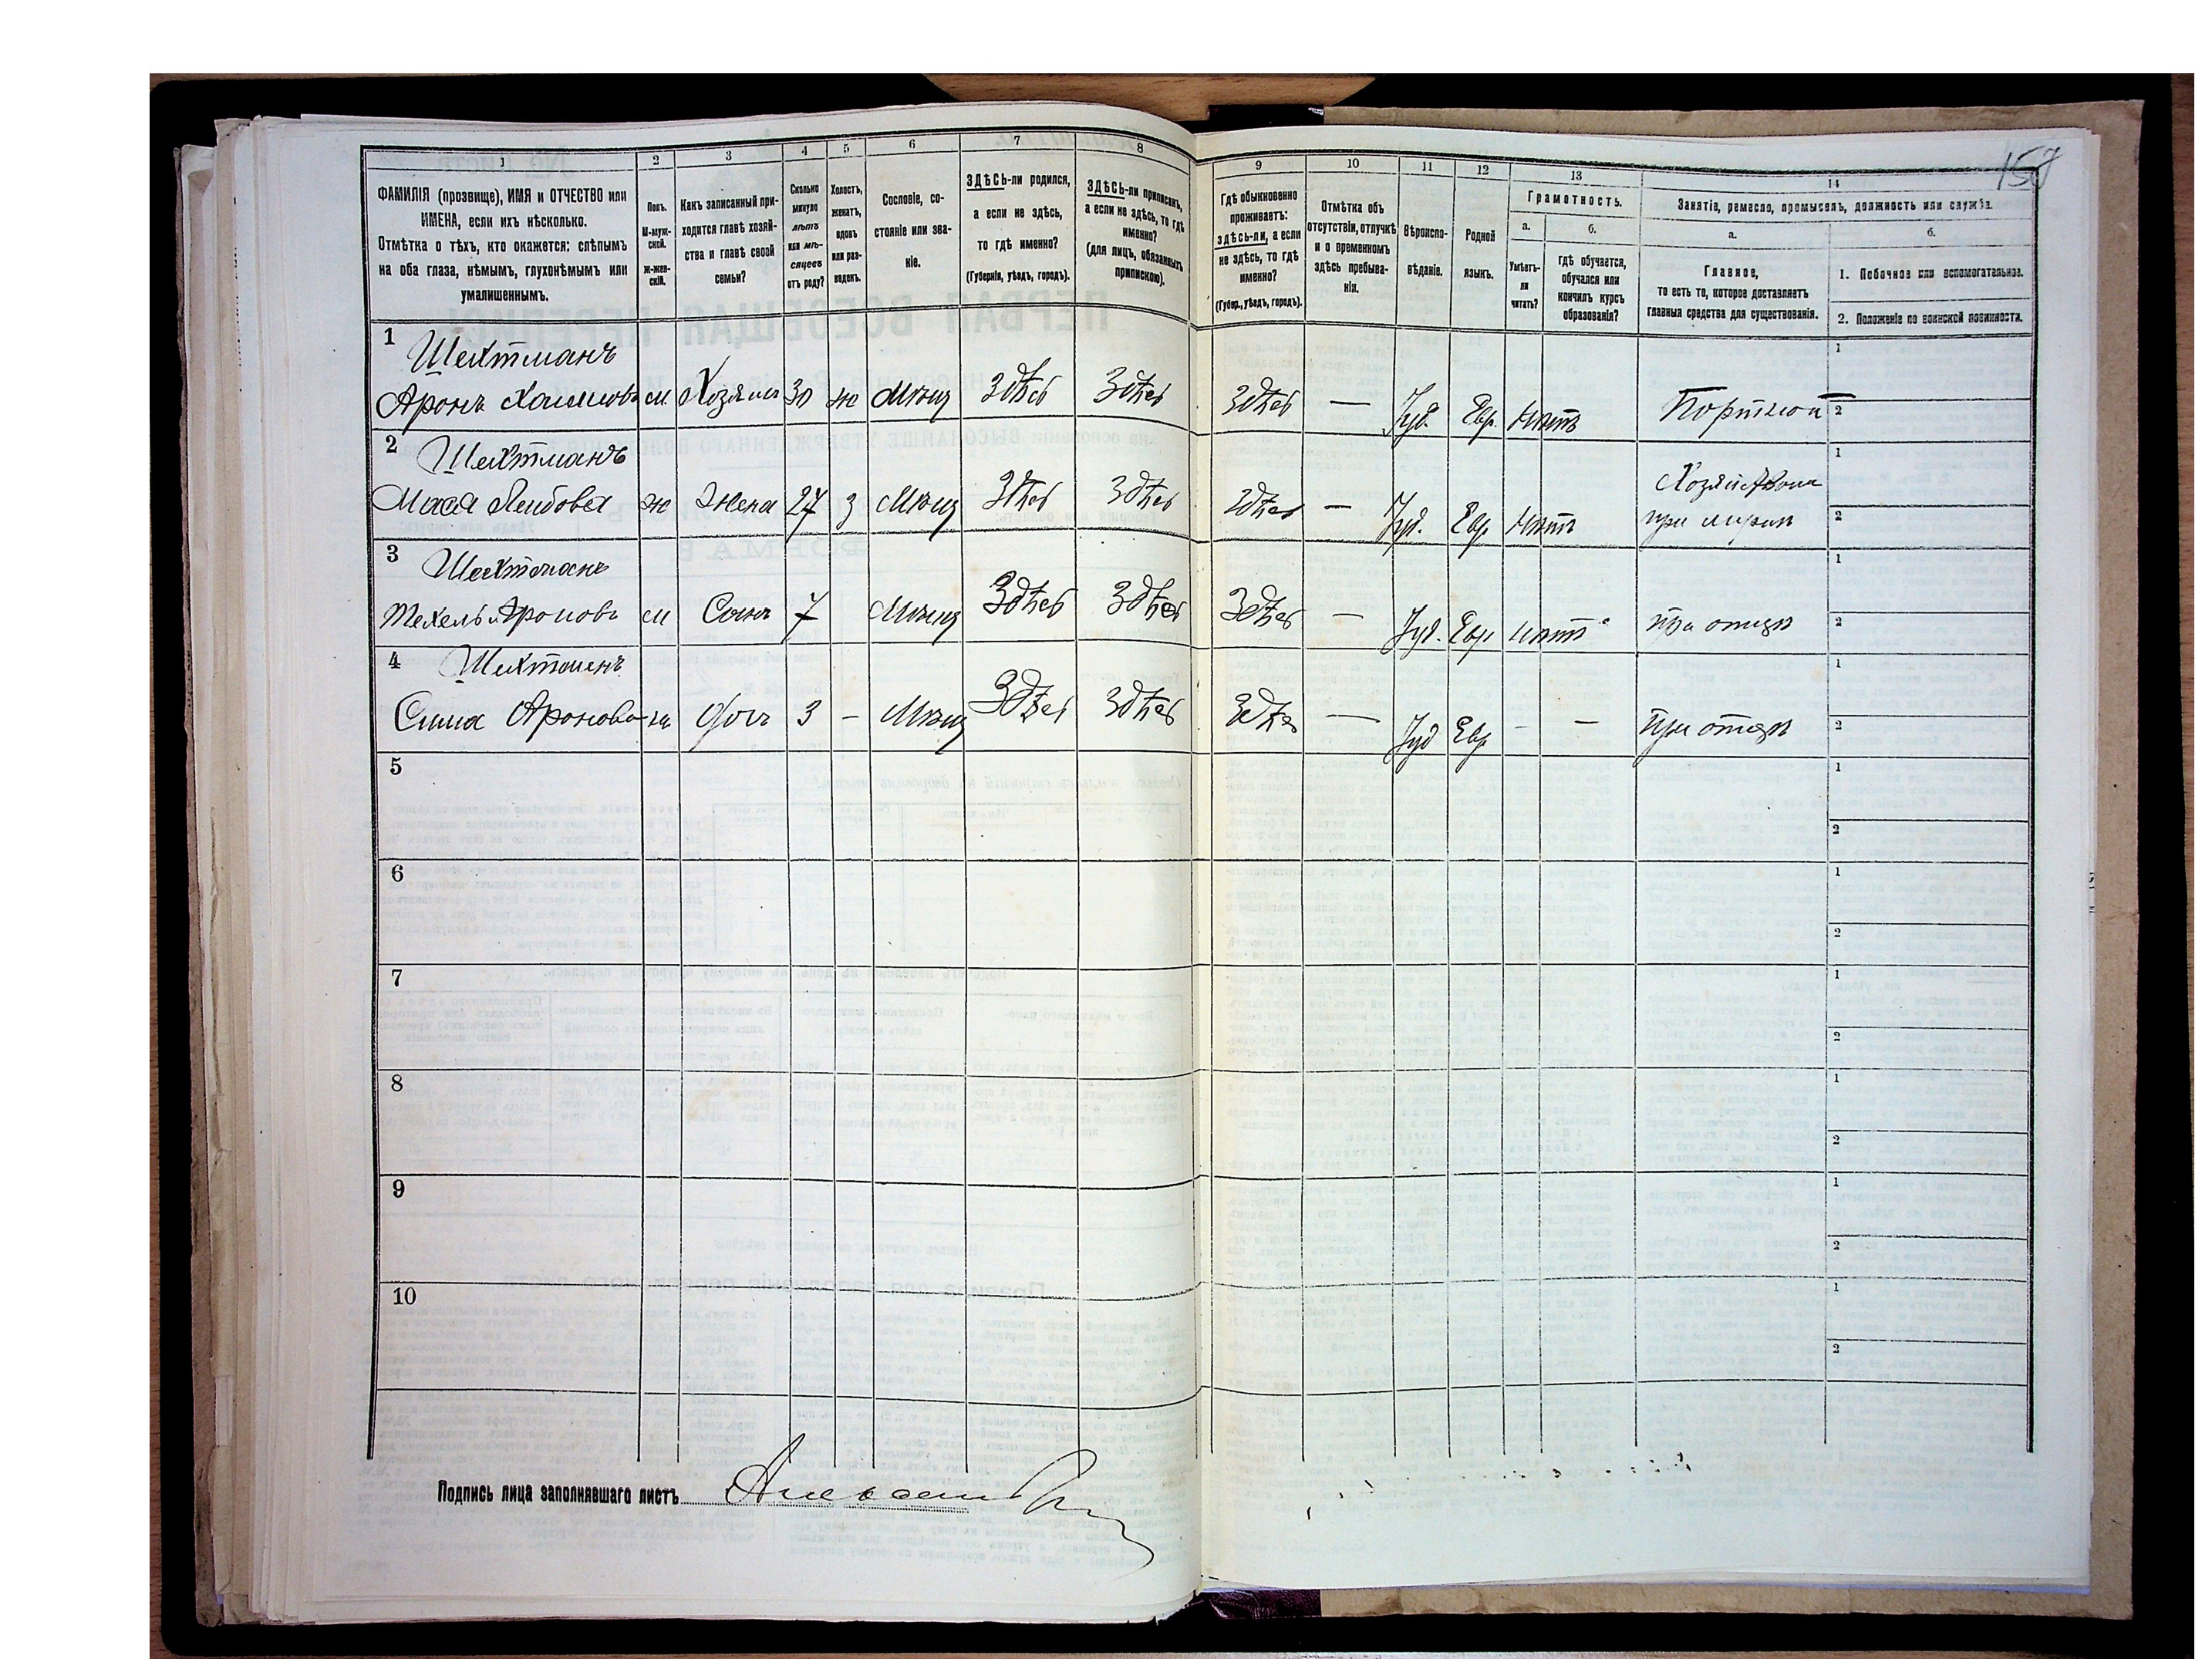 157
1 2 3 4 5 6 7 8 9 10 11 12 13 14
ФАМИЛІЯ (прозвище), ИМЯ и ОТЧЕСТВО или
ИМЕНА, если ихъ нѣсколько.
Отмѣтка о тѣхъ, кто окажется: слѣпымъ
на оба глаза, нѣмымъ, глухонѣмымъ или
умалишеннымъ.
Полъ.
М-муж-
ской.
Ж-жен-
скій.
Какъ записанный при-
ходится главѣ хозяй-
ства и главѣ своей
семьи?
Сколько
минуло
лѣтъ
или мѣ-
сяцевъ
отъ роду?
Холостъ,
женатъ,
вдовъ
или раз-
веденъ.
Сословіе, со-
стояніе или зва-
ніе.
ЗДѢСЬ-ли родился,
а если не здѣсь,
то гдѣ именно?
(Губернія, уѣздъ, городъ).
ЗДѢСЬ-ли приписанъ,
а если не здѣсь, то гдѣ
именно?
(для лицъ, обязанныхъ
припискою).
Гдѣ обыкновенно
проживаетъ:
здѣсь-ли, а если
не здѣсь, то гдѣ
именно?
(Губер., уѣздъ, городъ).
Отмѣтка объ
отсутствіи, отлучкѣ
и о временномъ
здѣсь пребыва-
ніи.
Вѣроиспо-
вѣданіе.
Родной
языкъ.
Грамотность.
а.
Умѣетъ-
ли
читать?
б.
гдѣ обучается,
обучался или
кончилъ курсъ
образованія?
Занятіе, ремесло, промыселъ, должность или служба.
а.
Главное,
то есть то, которое доставляетъ
главныя средства для существованія.
б.
1. Побочное или вспомогательное.
2. Положеніе по воинской повинности.
1 Шехтманъ 1
Аронъ Хаимовъ м Хозяинъ 30 ж Мѣщ Здѣсь Здѣсь Здѣсь — Іуд. Евр. Нѣтъ Портной 2
2 Шехтманъ Хозяйкою 1
Мася Лейбова ж Жена 27 З Мѣщ Здѣсь Здѣсь Здѣсь — Іуд. Евр Нѣтъ при 2
3 Шехтманъ 1
Ароновъ м Сынъ 7 Мѣщ Здѣсь Здѣсь Здѣсь — Іуд. Евр нѣтъ при отцѣ 2
4 Шехтманъ 1
Сима Аронова ж Дочь 3 — Мѣщ Здѣсь Здѣсь Здѣсь — Іуд Евр — — при отцѣ 2
5 1
2
6 1
2
7 1
2
8 1
2
9 1
2
10 1
2
Подпись лица заполнявшаго листъ